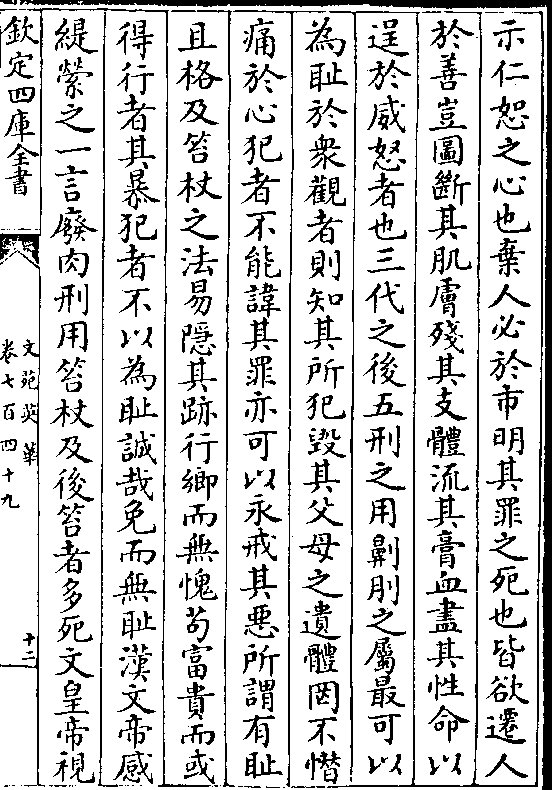 示仁恕之心也棄人必於市明其罪之死也皆欲遷人
於善豈圖斷其肌膚殘其支體流其膏血盡其性命以
逞於威怒者也三代之後五刑之用劓刖之屬最可以
為耻於衆觀者則知其所犯毀其父母之遺體罔不憯
痛於心犯者不能諱其罪亦可以永戒其惡所謂有耻
且格及笞杖之法易隱其跡行鄉而無愧苟富貴而或
得行者其暴犯者不以為耻誠哉免而無耻漢文帝感
緹縈之一言廢肉刑用笞杖及後笞者多死文皇帝視
欽定四庫全書
文苑英華
卷七百四十九
十二